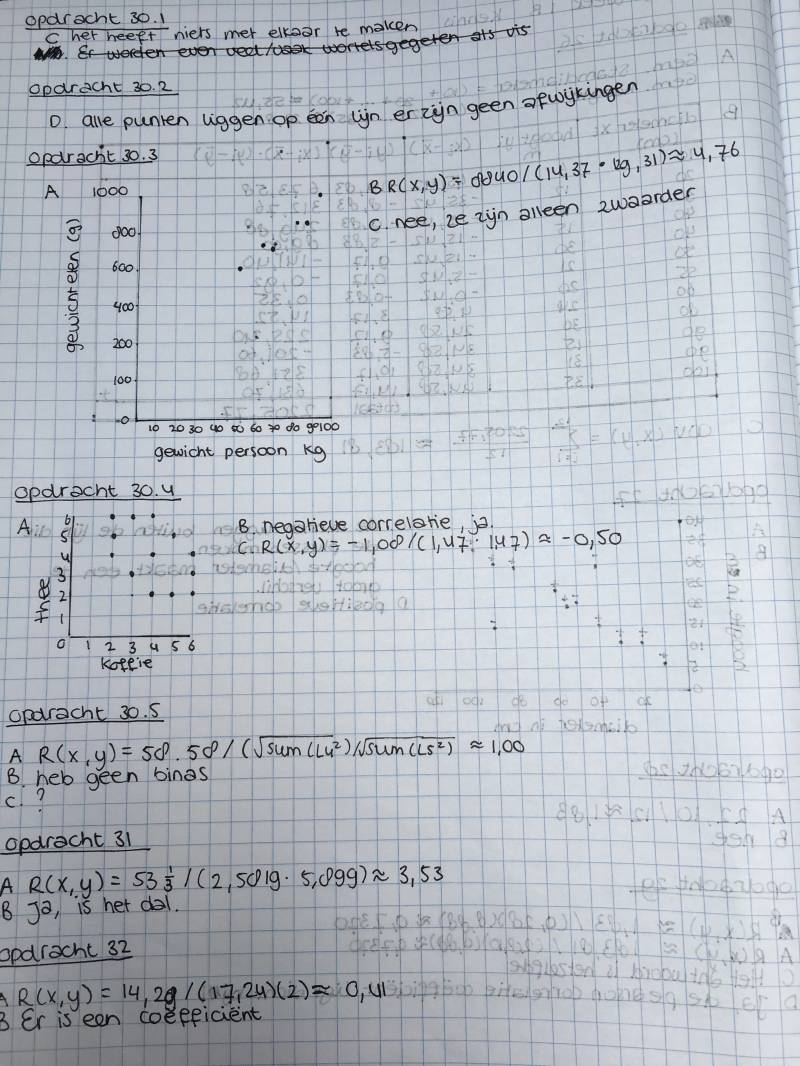 opdracht 30.1
C het heeft niets met elkaar te maken
Er worden even veel/vaak wortels gegeten als vis
opdracht 30.2
D. alle punten liggen op één lijn er zijn geen afwijkingen
opdracht 30.3
A
B R(x,y) = 8840/(14,37 · kg,31) ≈ 4,76
C. nee, ze zijn alleen zwaarder
gewicht eten (g)
1000
800
600
400
200
100
0
10 20 30 40 50 60 70 80 90 100
gewicht persoon kg
opdracht 30.4
A
B negatieve correlatie, ja.
C R(x,y) = -1,08/(1,47 · 1,47) ≈ -0,50
thee
6
5
4
3
2
1
0 1 2 3 4 5 6
koffie
opdracht 30.5
A R(x,y) = 58.58/(√sum(L4²)/√sum(L5²) ≈ 1,00
B. heb geen binas
C. ?
opdracht 31
A R(x,y) = 53 1/3 /(2,5819 · 5,899) ≈ 3,53
B Ja, is het dal.
opdracht 32
A R(x,y) = 14,29/(17,24)(2) ≈ 0,41
B Er is een coëfficiënt